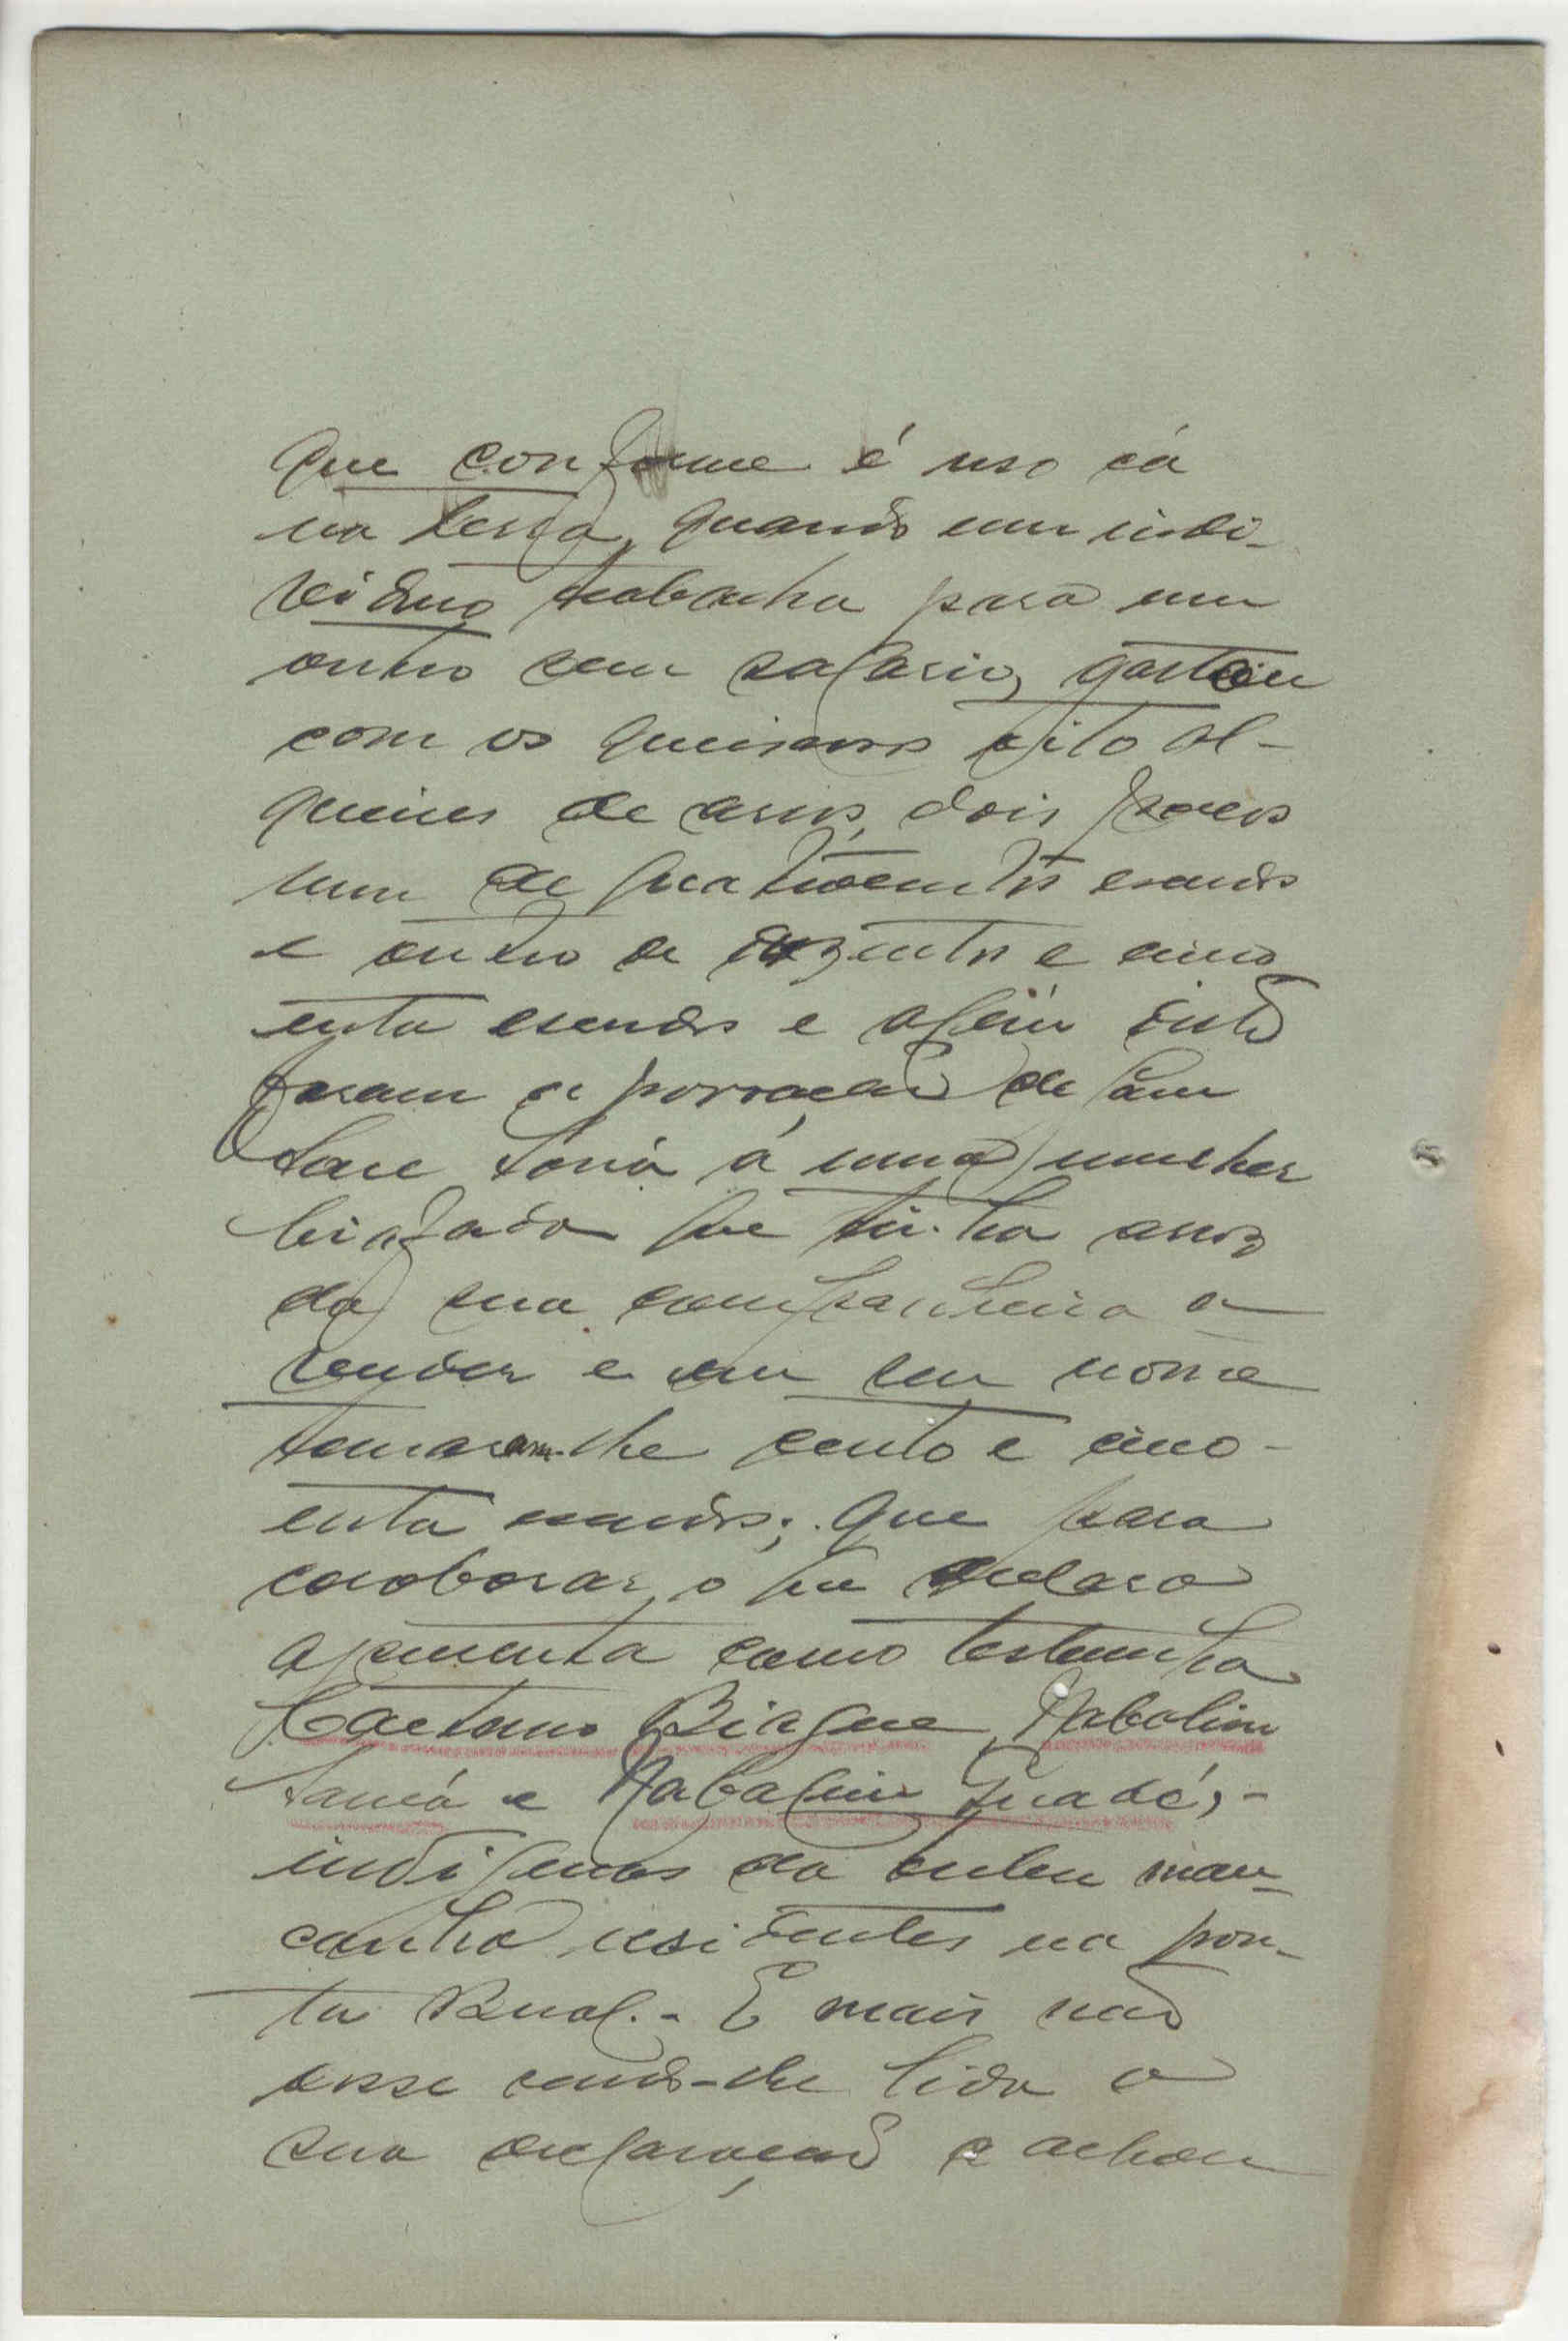 que conforme é uso cá
na terra, quando um indi-
viduo trabalha para um
outro sem salario, gastou
com os queixosos oito al-
queires de arroz, dois porcos
um de quatrocentos escudos
e outro de duzentos e cinco
enta escudos e além disto
foram á povoação de
á uma mulher
biafada que tinha arroz
da sua companheira a
vender e em seu nome
tomaram-lhe cento e cinco-
enta escudos; que para
coroborar o que declara
apresenta como testemunha
Caetano Biague, Nabolim
Samá e Nabalim Quadé, -
indigenas da  man-
canha residentes na pon-
ta Rual. - E mais não
disse sendo-lhe lida a
sua declaração a achou